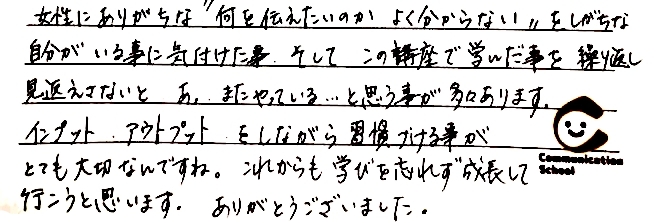 女性にありがちな〝何を伝えたいのか よく分からない〟をしがちな
自分がいる事に気付けた事. そして この講座で学んだ事を繰り返し
見返えさないと あ, またやっている…と思う事が多々あります.
インプット. アウトプット をしながら習慣づける事が
とても大切なんですね。これからも学びを忘れず成長して
行こうと思います. ありがとうございました。
Communication
School